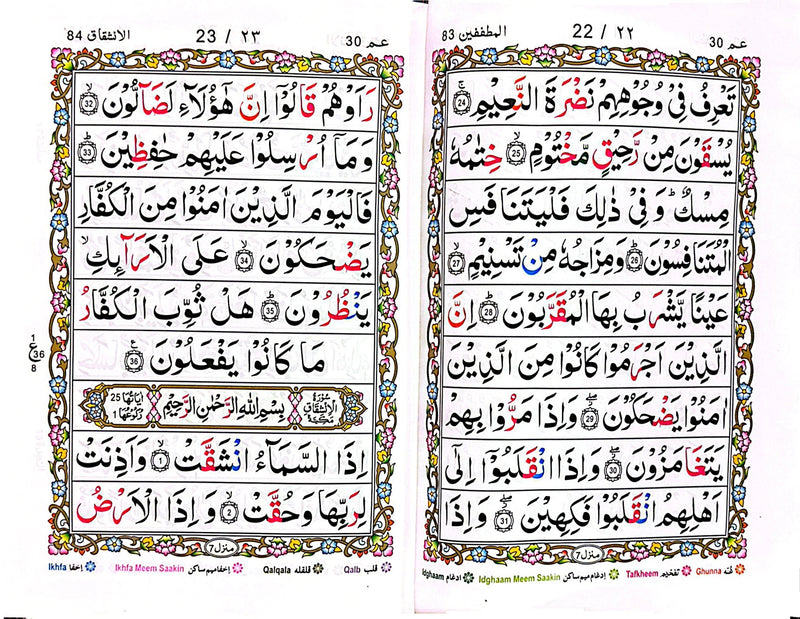 عم 30
22 / ۲۲
المطففين 83
تَعْرِفُ فِیْ وُجُوْهِهِمْ نَضْرَةَ النَّعِیْمِ ۚ 24
یُسْقَوْنَ مِنْ رَّحِیْقٍ مَّخْتُوْمٍ ۙ 25 خِتٰمُهٗ
مِسْكٌ ؕ وَ فِیْ ذٰلِكَ فَلْیَتَنَافَسِ
الْمُتَنَافِسُوْنَ ؕ 26 وَمِزَاجُهٗ مِنْ تَسْنِیْمٍ ۙ 27
عَیْنًا یَّشْرَبُ بِهَا الْمُقَرَّبُوْنَ ؕ 28 اِنَّ
الَّذِیْنَ اَجْرَمُوْا كَانُوْا مِنَ الَّذِیْنَ
اٰمَنُوْا یَضْحَكُوْنَ ۖ 29 وَاِذَا مَرُّوْا بِهِمْ
یَتَغَامَزُوْنَ ۖ 30 وَاِذَا انْقَلَبُوْۤا اِلٰۤی
اَهْلِهِمُ انْقَلَبُوْا فَكِهِیْنَ ۖ 31 وَاِذَا
منزل 7
غنه Ghunna تفخیم Tafkheem ادغام میم ساکن Idghaam Meem Saakin ادغام Idghaam
عم 30
23 / ۲۳
الانشقاق 84
رَاَوْهُمْ قَالُوْۤا اِنَّ هٰۤؤُلَآءِ لَضَآلُّوْنَ ۙ 32
وَ مَاۤ اُرْسِلُوْا عَلَیْهِمْ حٰفِظِیْنَ ؕ 33
فَالْیَوْمَ الَّذِیْنَ اٰمَنُوْا مِنَ الْكُفَّارِ
یَضْحَكُوْنَ ۙ 34 عَلَی الْاَرَآىِٕكِ ۙ
یَنْظُرُوْنَ ؕ 35 هَلْ ثُوِّبَ الْكُفَّارُ
مَا كَانُوْا یَفْعَلُوْنَ ۧ 36
1
ع 36
8
سُوْرَةُ الْاِنْشِقَاقِ مَكِّیَّةٌ بِسْمِ اللّٰهِ الرَّحْمٰنِ الرَّحِیْمِ اٰیَاتُهَا 25 رُكُوْعُهَا 1
اِذَا السَّمَآءُ انْشَقَّتْ ۙ 1 وَاَذِنَتْ
لِرَبِّهَا وَحُقَّتْ ۙ 2 وَ اِذَا الْاَرْضُ
منزل 7
قلب Qalb قلقله Qalqala اخفا میم ساکن Ikhfa Meem Saakin اخفا Ikhfa